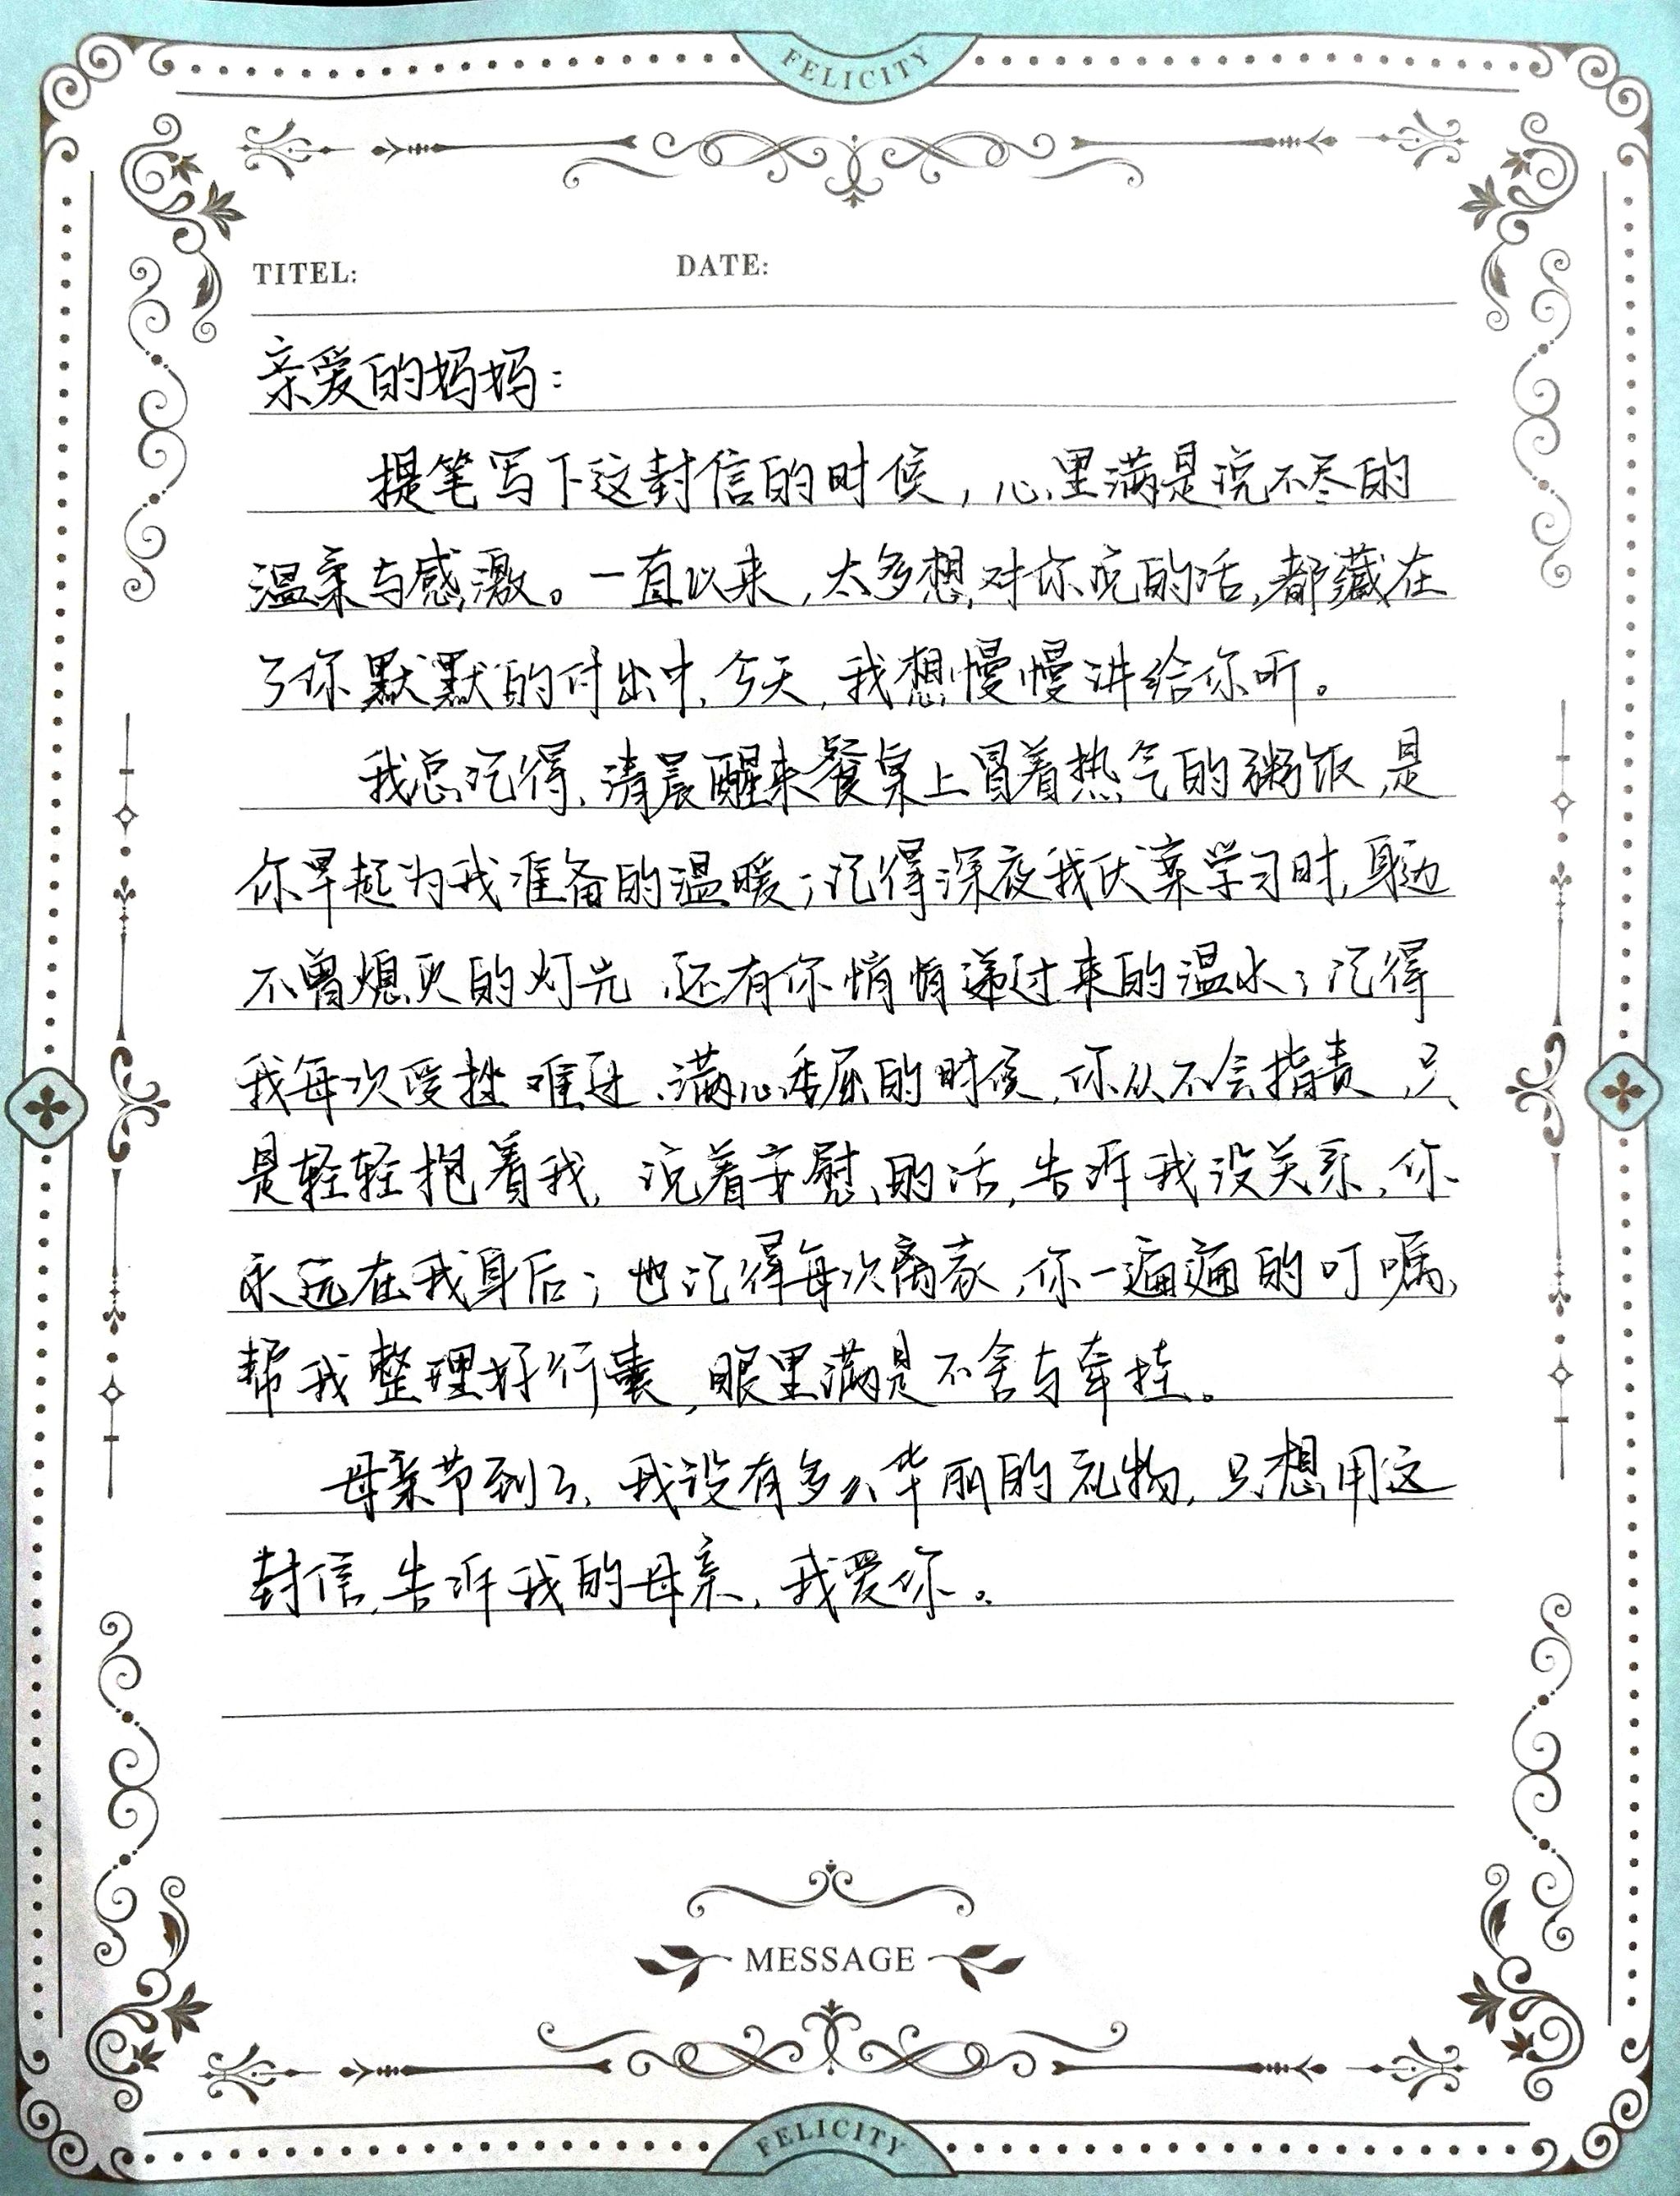 FELICITY
TITEL: DATE:
亲爱的妈妈：
提笔写下这封信的时候，心里满是说不尽的
温柔与感激。一直以来，太多想对你说的话，都藏在
了你默默的付出中，今天，我想慢慢讲给你听。
我总记得，清晨醒来餐桌上冒着热气的粥饭，是
你早起为我准备的温暖；记得深夜我伏案学习时，身边
不曾熄灭的灯光，还有你悄悄递过来的温水；记得
我每次受挫难过、满心委屈的时候，你从不会指责，只
是轻轻抱着我，说着安慰的话，告诉我没关系，你
永远在我身后；也记得每次离家，你一遍遍的叮嘱，
帮我整理好行囊，眼里满是不舍与牵挂。
母亲节到了，我没有多么华丽的礼物，只想用这
封信，告诉我的母亲，我爱你。
MESSAGE
FELICITY